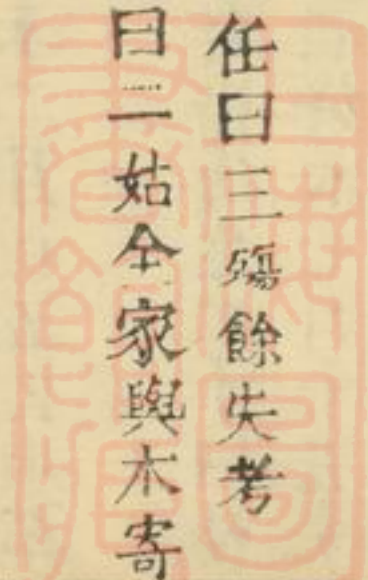 任曰三殤餘失考
曰二姑仝家與木寄